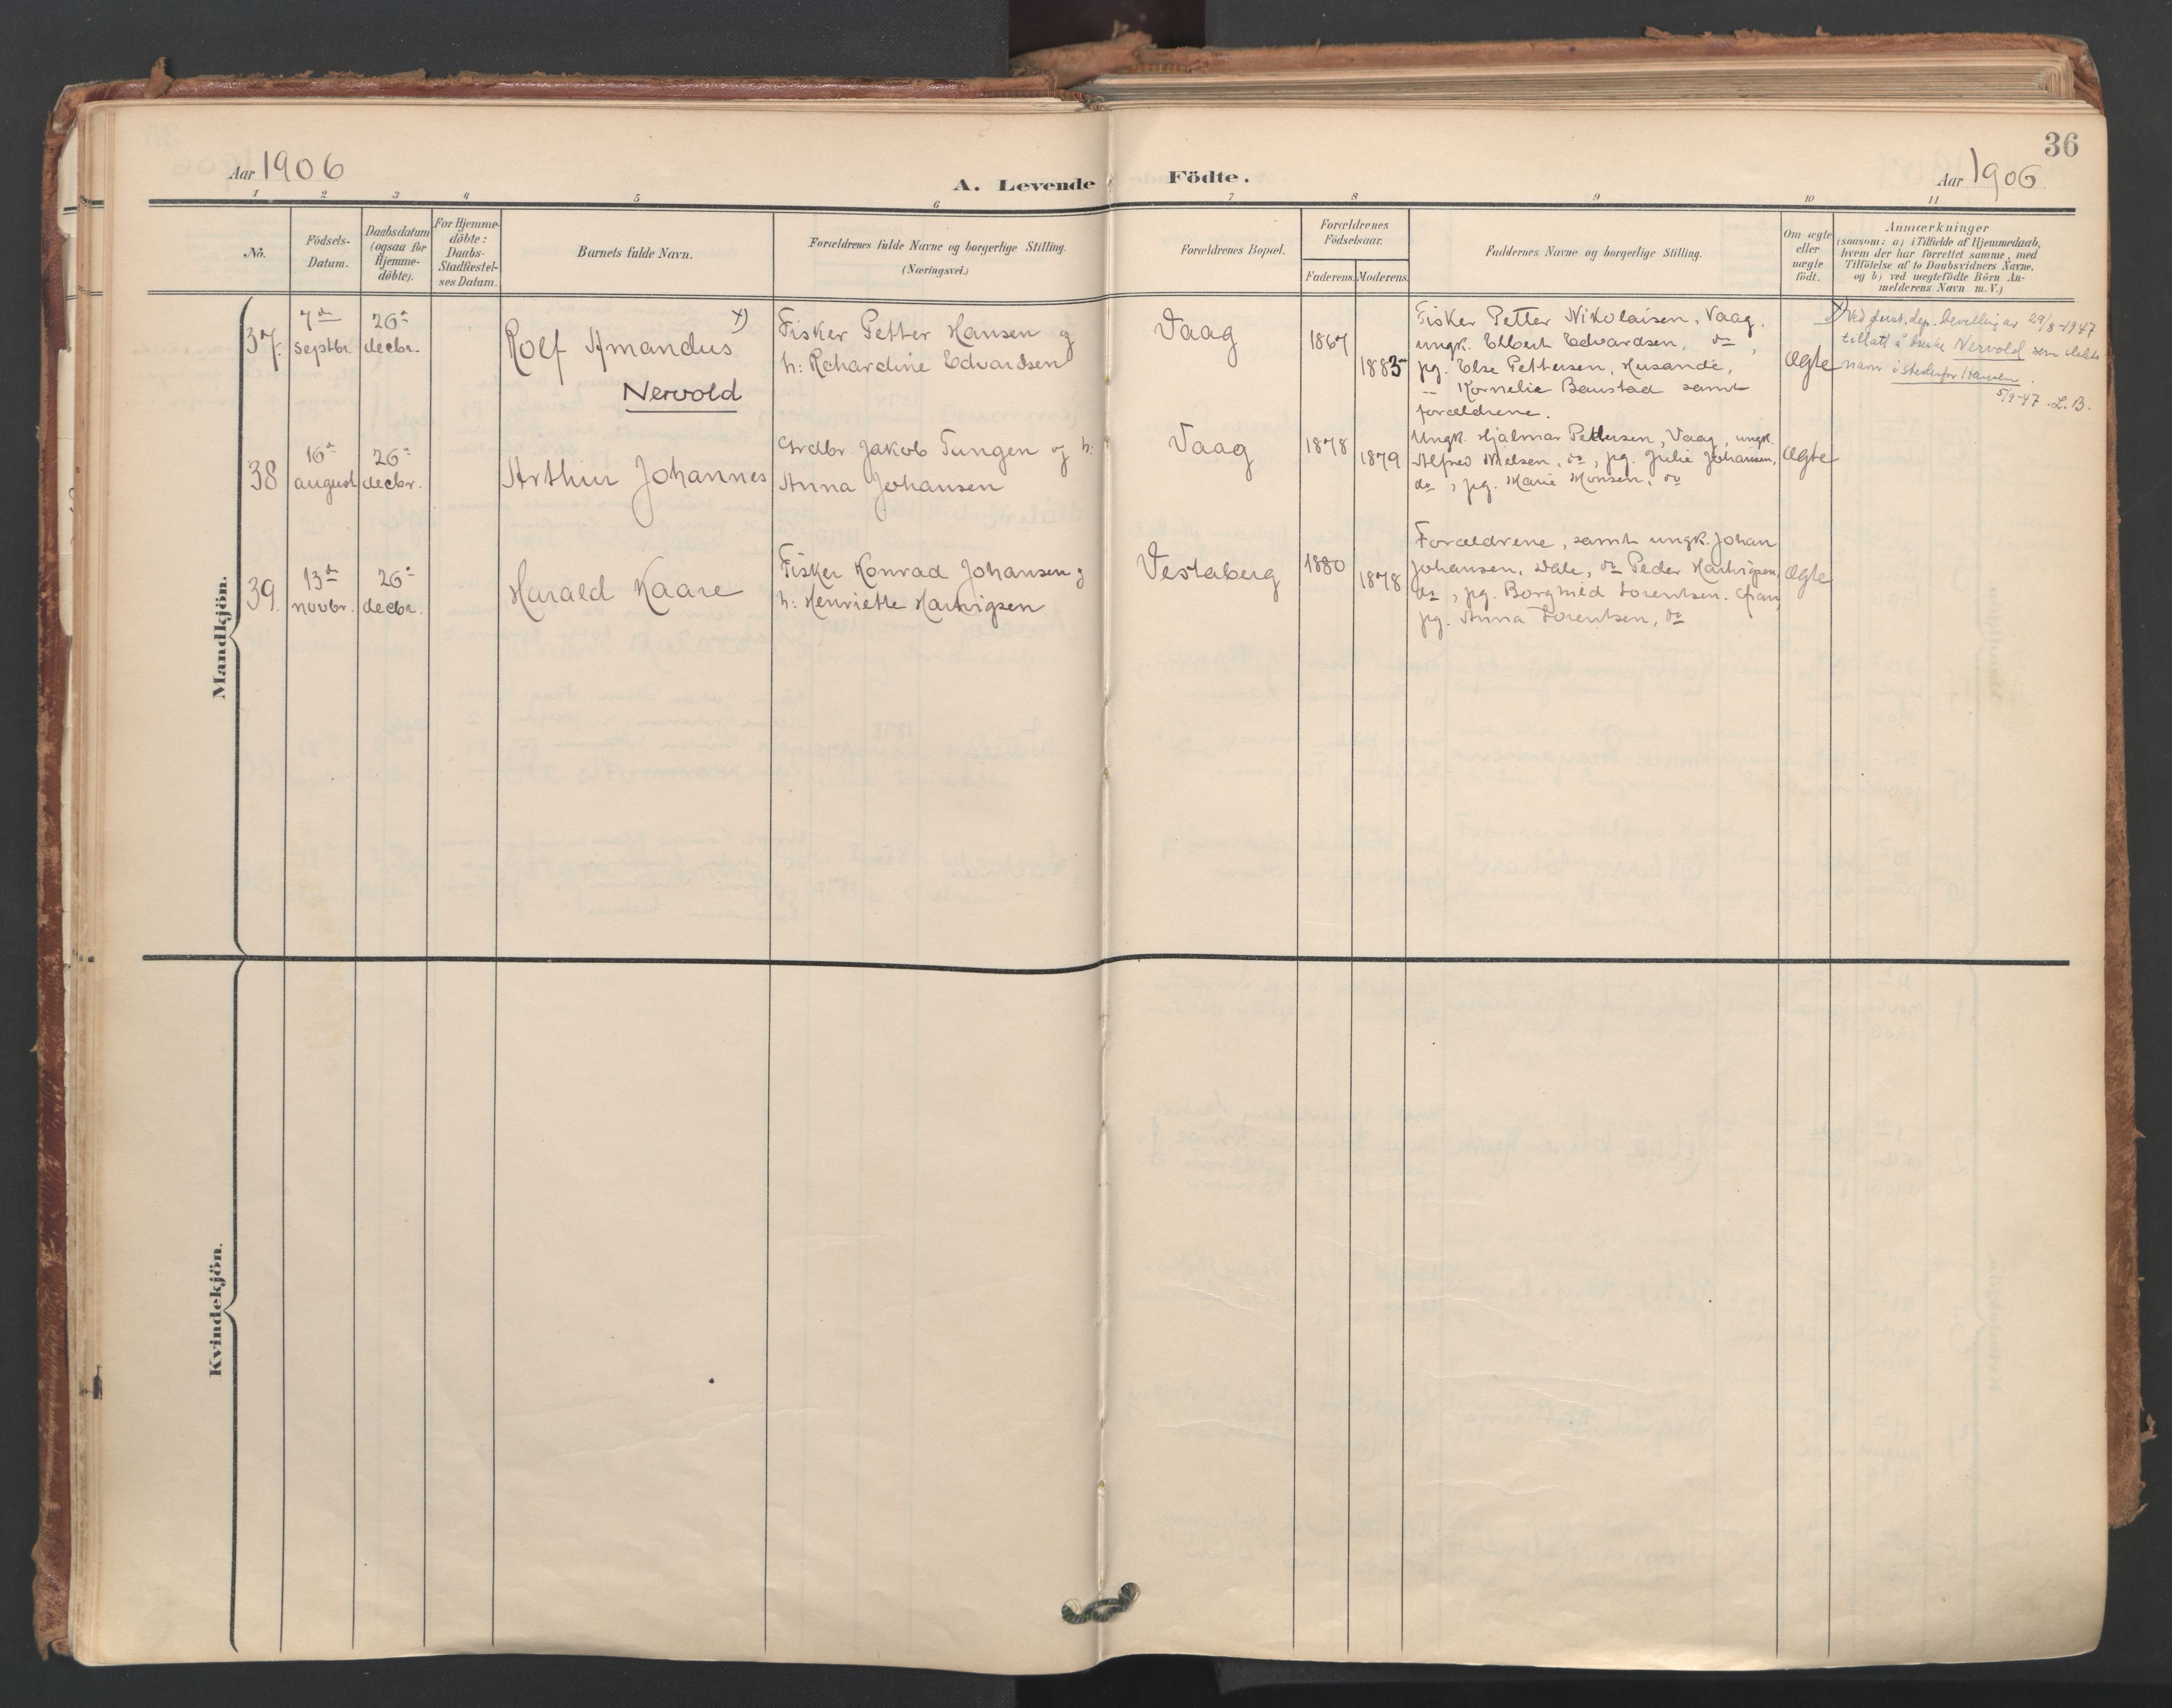 36
Aar 1906
A. Levende Födte.
Aar 1906
1 2 3 4 5 6 7 8 9 10 11
No.
Födsels-
Datum.
Daabsdatum
(ogsaa for
Hjemme-
döbte).
For Hjemme-
döbte:
Daabs-
Stadfæstel-
ses Datum.
Barnets fulde Navn.
Forældrenes fulde Navne og borgerlige Stilling.
(Næringsvei.)
Forældrenes Bopæl.
Forældrenes
Födselsaar.
Faderens. Moderens.
Faddernes Navne og borgerlige Stilling.
Om ægte
eller
uægte
födt.
Anmærkninger
(saasom: a) i Tilfælde af Hjemmedaab,
hvem der har forrettet samme, med
Tilföielse af to Daabsvidners Navne.
og b) ved uægtefödte Börn An-
melderens Navn m. V.)
Mandkjön.
37.
7de
septbr.
26de
decbr.
Rolf Amandus x)
Nervold
Fisker Petter Hansen og
h: Rchardine Edvardsen
Vaag
1867
1883
Fisker Petter Nikolaisen, Vaag.
ungk. Elbert Edvardsen, do,
pg. Else Pettersen, Husande,
" Kornelie Baustad samt
forældrene.
Ægte
x) Ved just. dep. bevilling av 29/8-1947
tillatt å bruke Nervold som slekts
navn istedenfor Hansen.
5/9-47. L.B.
38
16de
august
26de
decbr.
Arthur Johannes
Grdbr. Jakob Tungen og h:
Anna Johansen
Vaag
1878
1879
Ungk. Hjalmar Pettersen, Vaag, ungk.
Alfred Nielsen, do, pg. Julie Johansen,
do, pg. Marie Monsen, do
Ægte
39.
13de
novbr.
26de
decbr.
Harald Kaare
Fisker Konrad Johansen og
h: Henriette Hartvigsen
Vestaberg
1880
1878
Forældrene, samt ungk. Johan
Johansen, Dale, do Peder Hartvigsen,
do, pg. Borghild Lorentsen.
pg. Anna Lorentsen, do
Ægte
Kvindekjön.